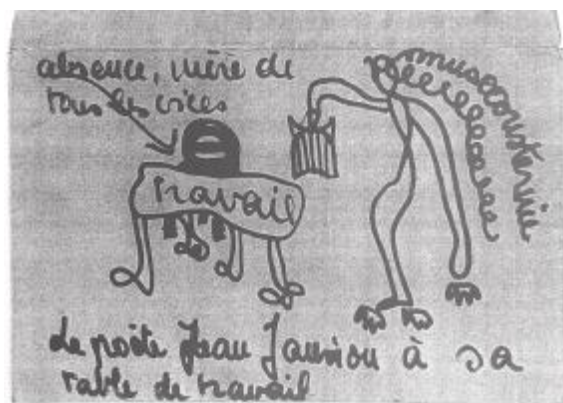 absence, mère de
tous les vices
travail
Le poète Jean Jauniou à sa
table de travail